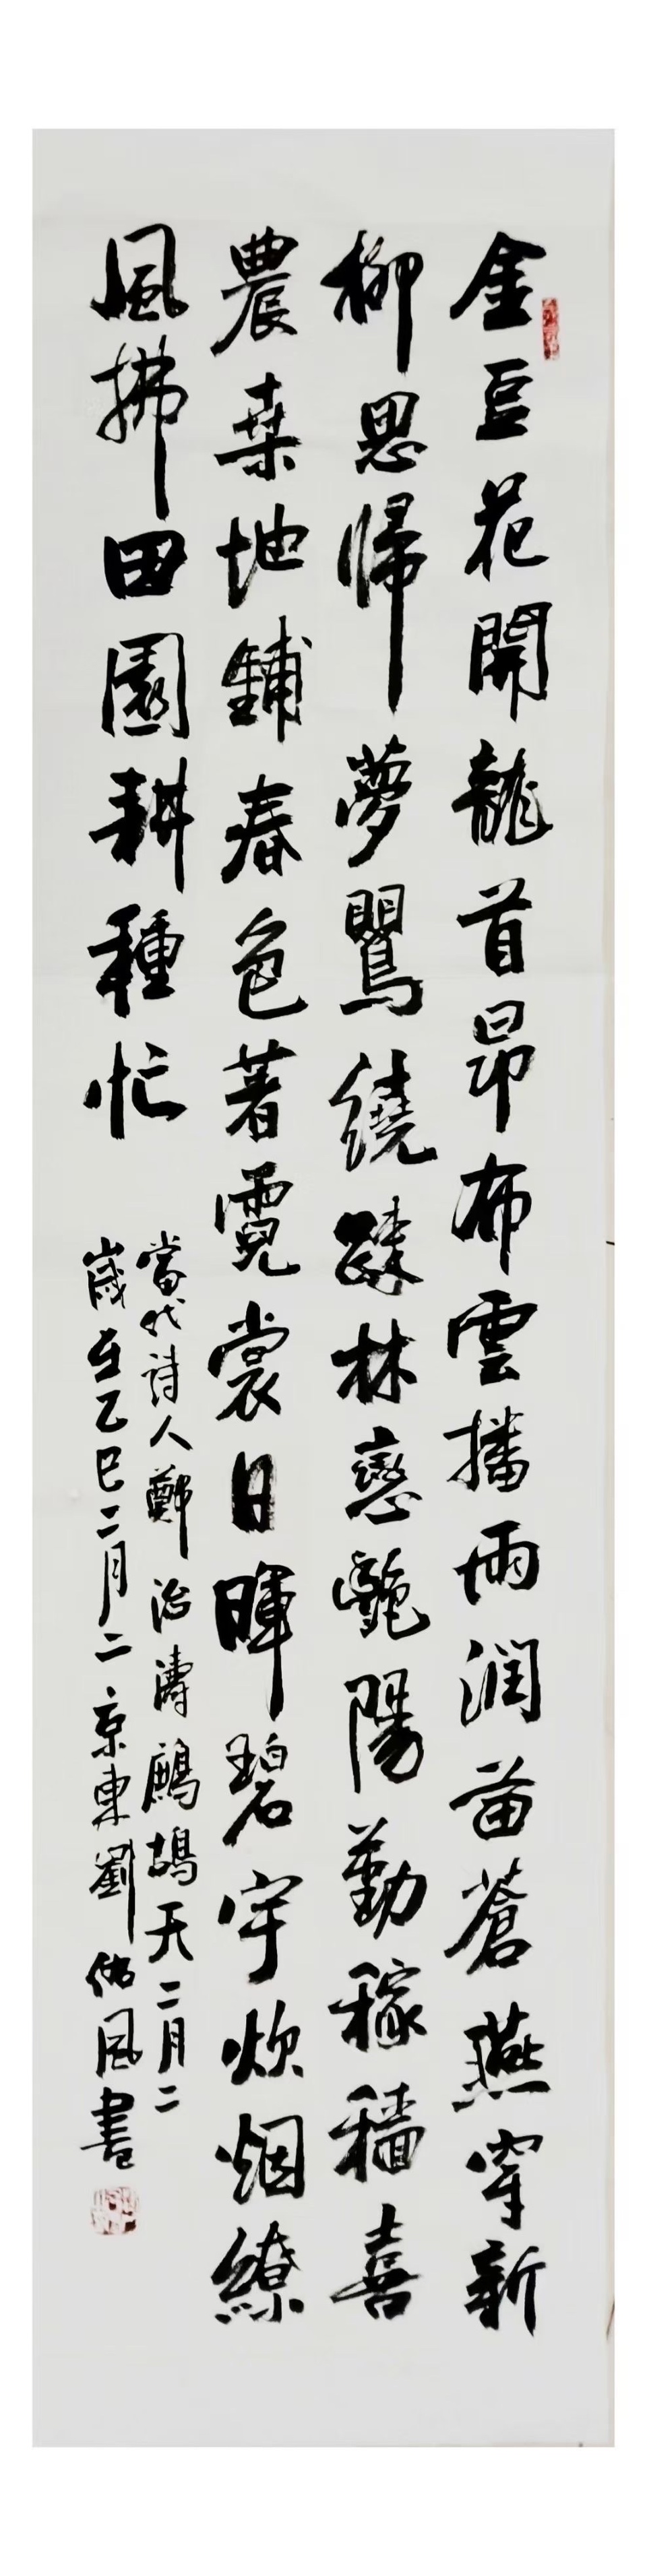 金豆花開龍首昂布雲播雨润苗蒼燕穿新
柳思歸夢鶯繞疎林戀艷陽勤稼穡喜
農桑地鋪春色著霓裳日暉碧宇炊烟繚
風拂田園耕種忙
當代詩人鄭治濤鷓鴣天二月二
歲在乙巳二月二京東劉佑風書